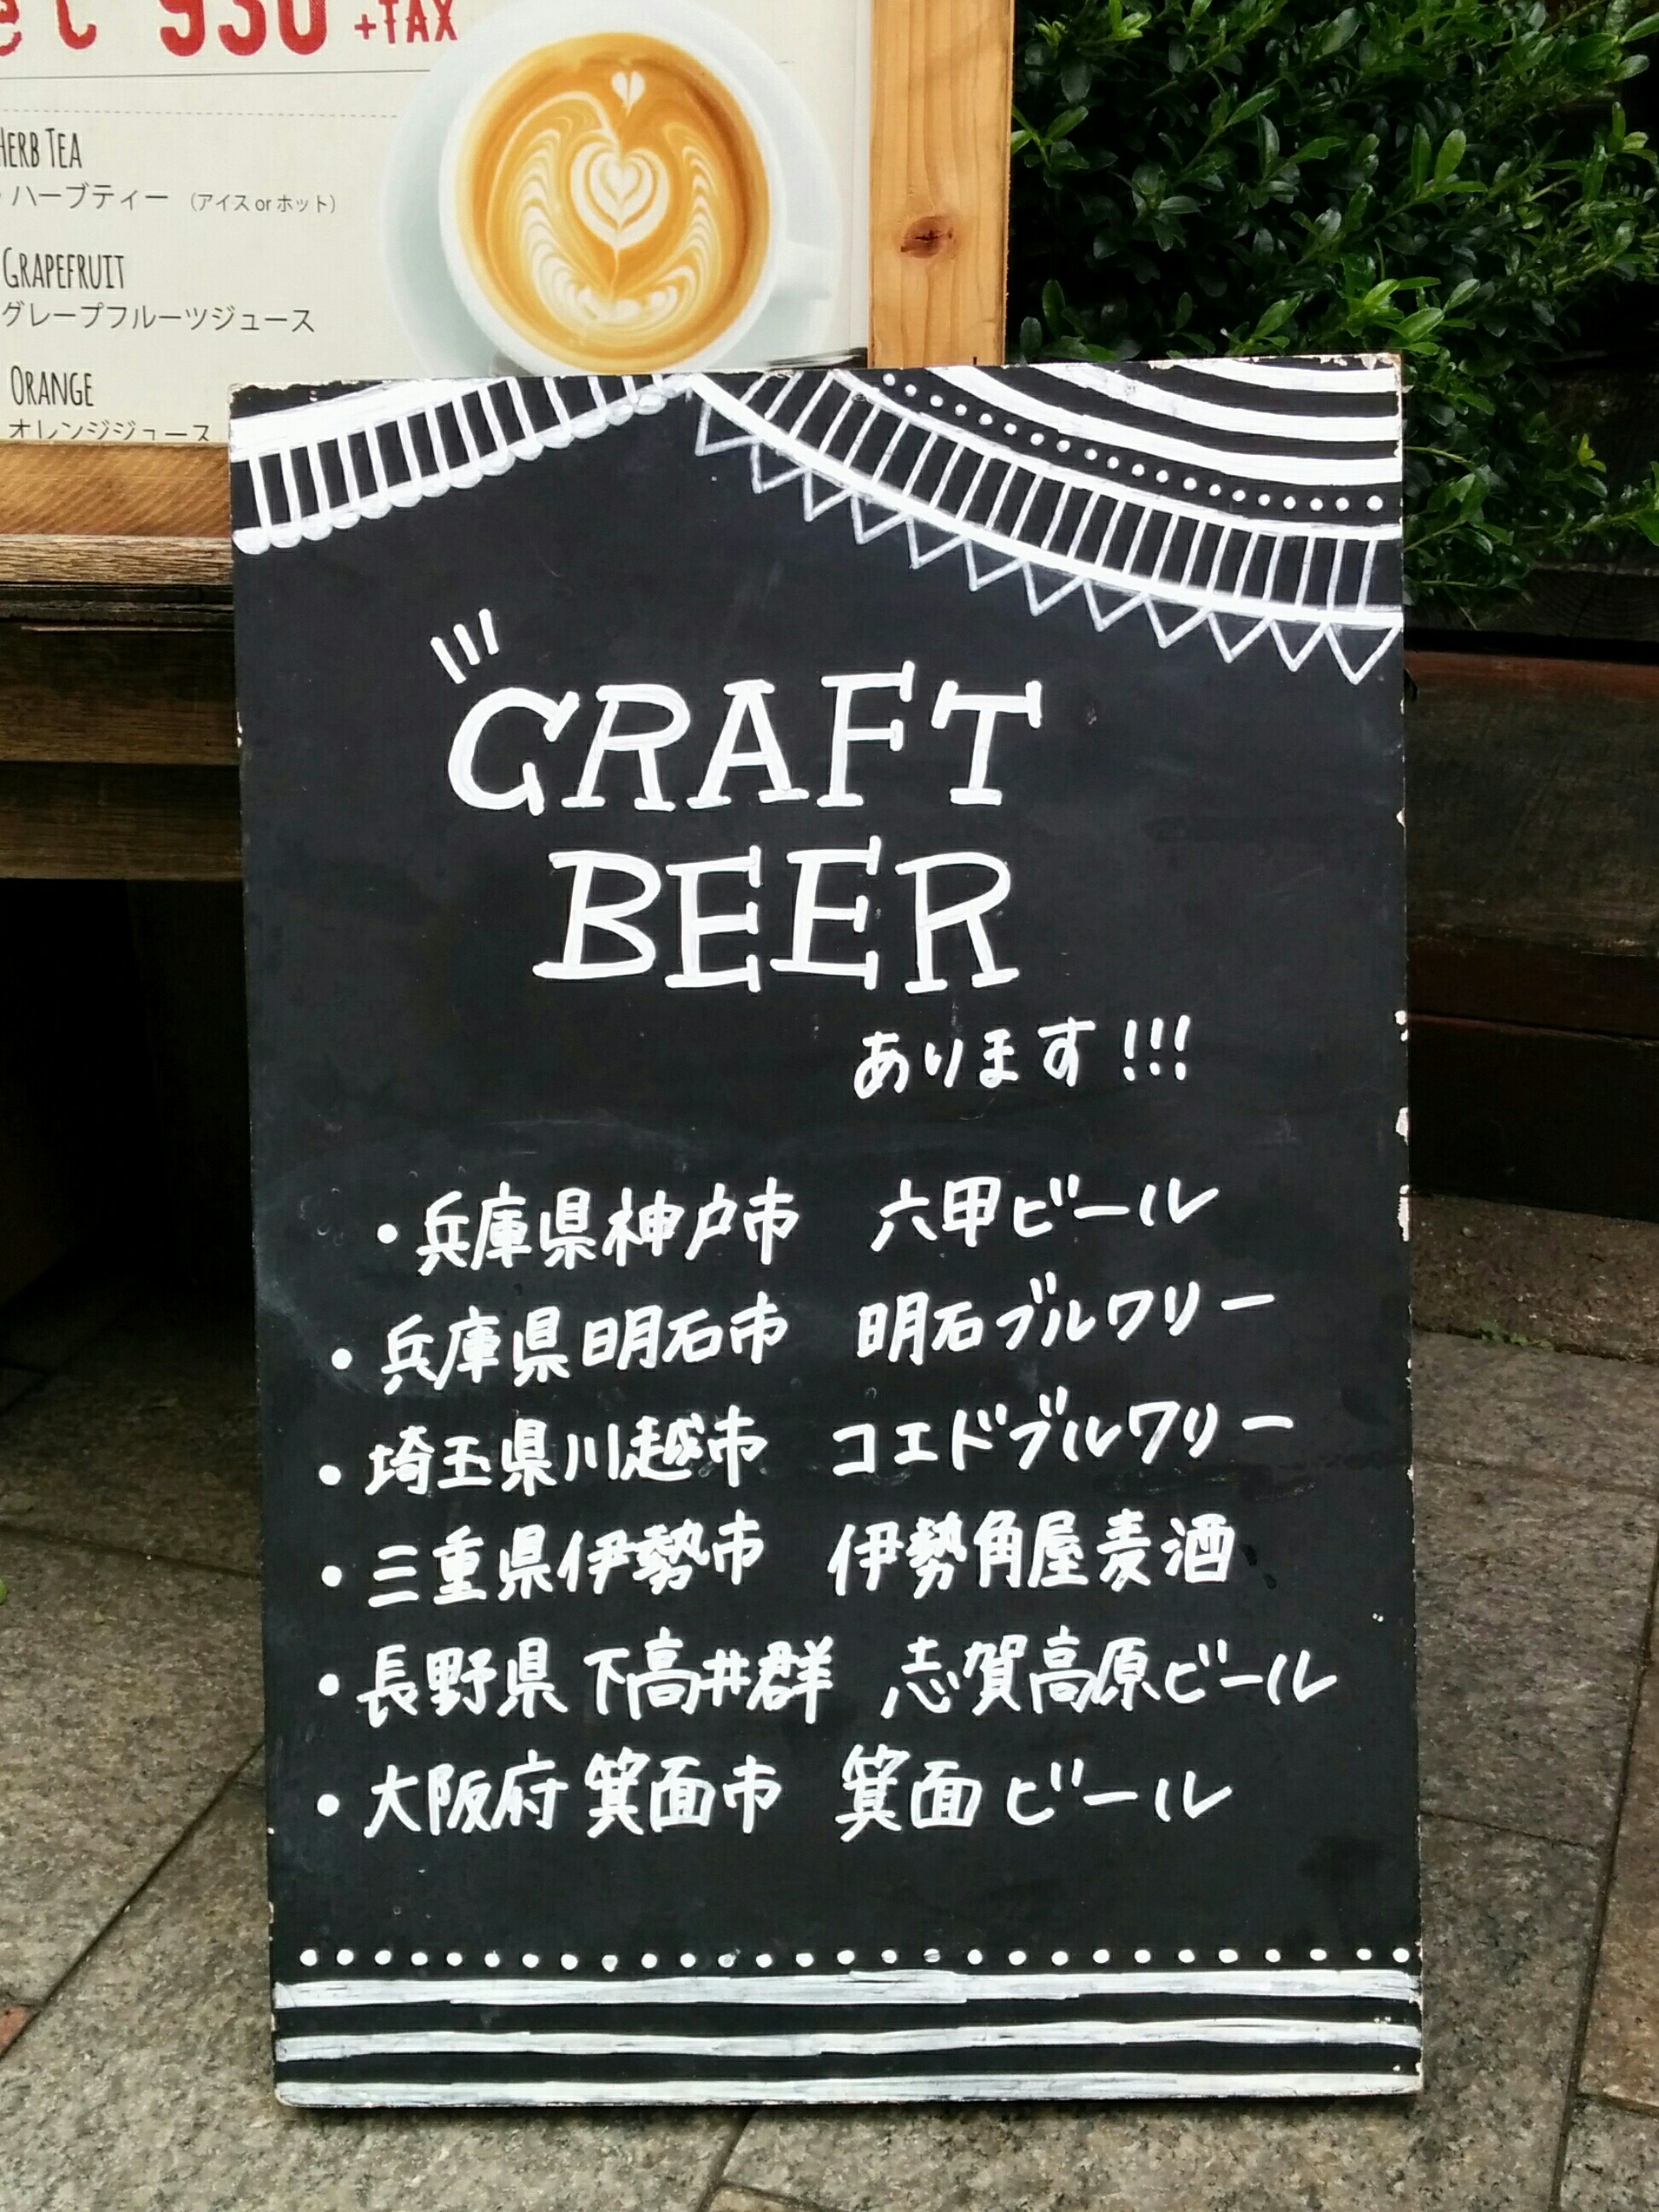 930 +TAX
HERB TEA
ハーブティー （アイス or ホット）
GRAPEFRUIT
グレープフルーツジュース
ORANGE
オレンジジュース
CRAFT
BEER
あります!!!
・兵庫県神戸市 六甲ビール
・兵庫県明石市 明石ブルワリー
・埼玉県川越市 コエドブルワリー
・三重県伊勢市 伊勢角屋麦酒
・長野県下高井群 志賀高原ビール
・大阪府箕面市 箕面ビール